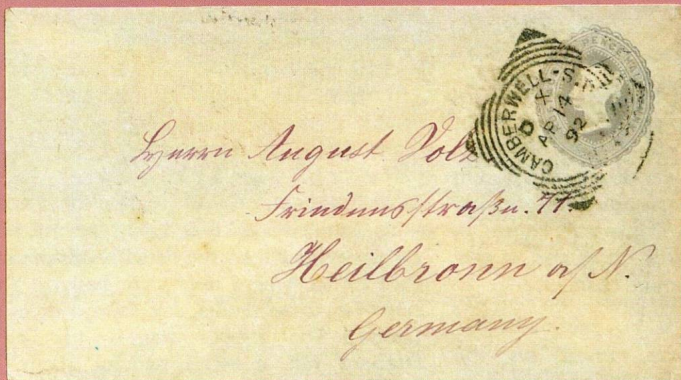 CAMBERWELL-S.
D +
AP 14
92
Herrn August Volz
Friedensstraße. 71.
Heilbronn a/N.
Germany.